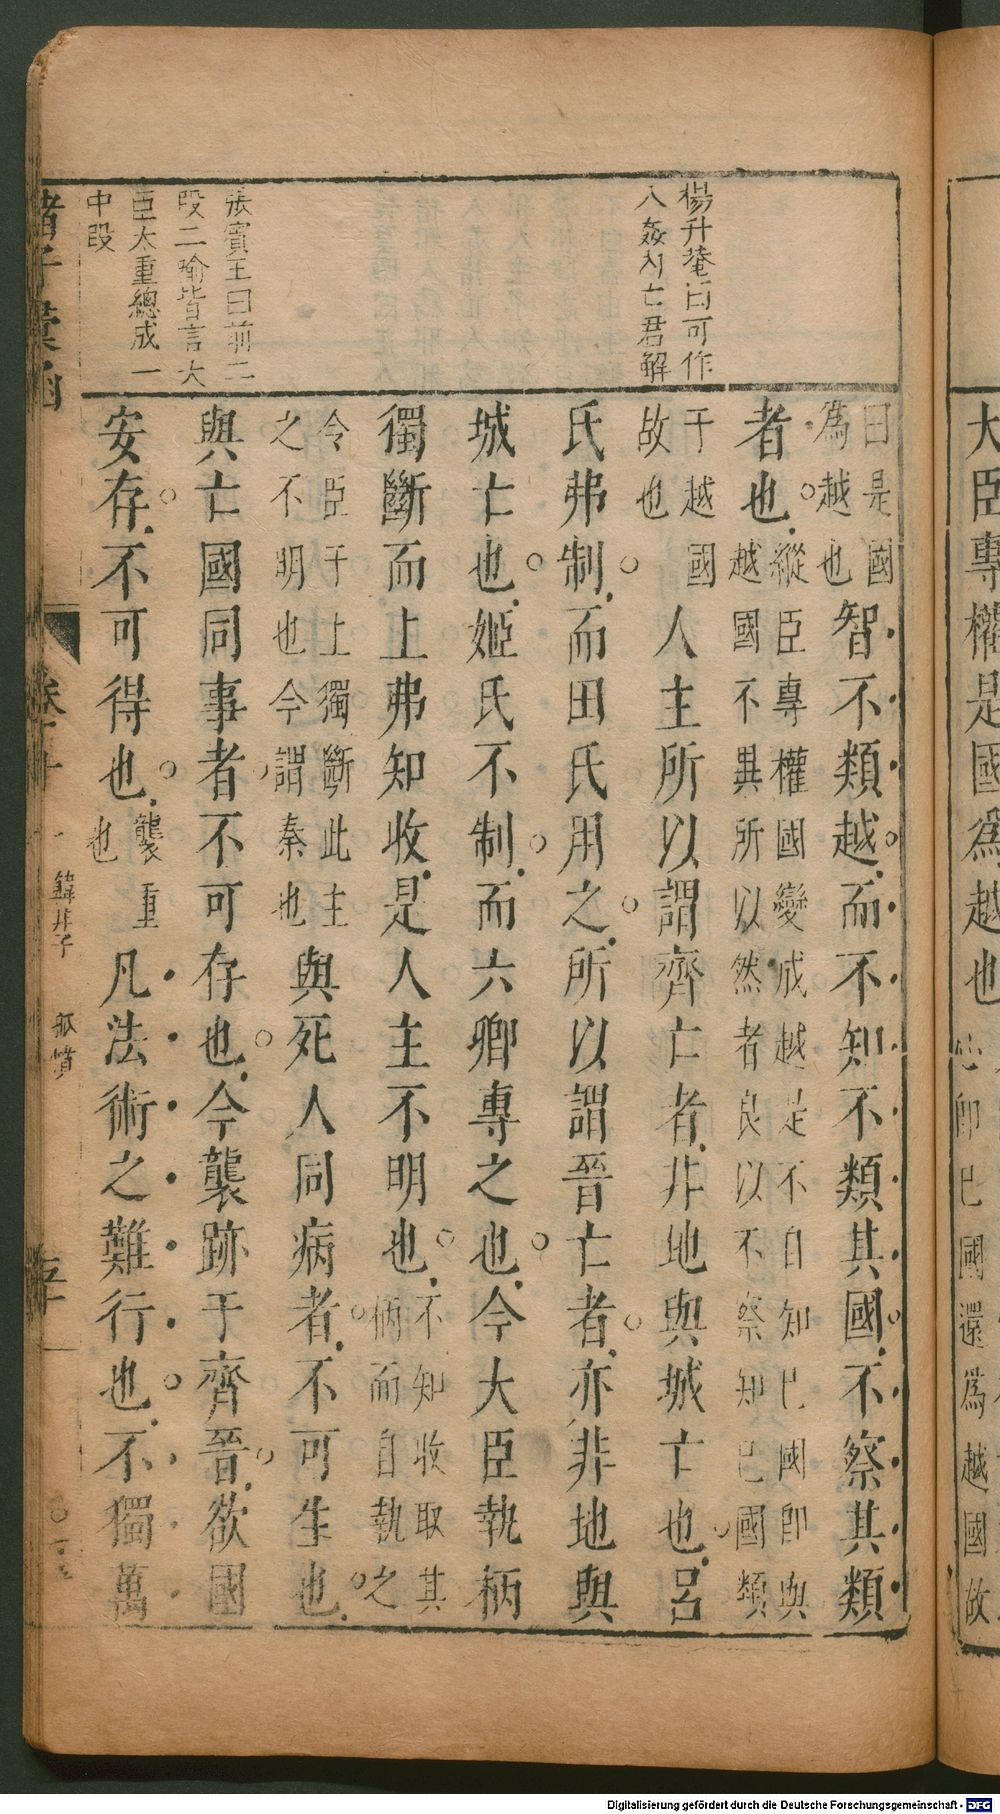 大臣專權是國為越也
還為越國故
楊升菴曰可作
八姦刋亡君解
張賓王曰前二
段二喻皆言大
臣太重總成一
中段
曰是國
為越也
智不類越而不知不類其國不察其類
者也
縱臣專權國變成越是不自知已國即與
越國不異所以然者良以不察知已國類
于越國
故也
人主所以謂齊亡者非地與城亡也呂
氏弗制而田氏用之所以謂晉亡者亦非地與
城亡也姬氏不制而六卿專之也今大臣執柄
獨斷而上弗知收是人主不明也
不知收取其
柄而自執之
令臣于上獨斷此主
之不明也今謂秦也
與死人同病者不可生也
與亡國同事者不可存也今襲跡于齊晉欲國
安存不可得也
襲重
也
凡法術之難行也不獨萬
諸子彙函
卷二十
韓非子 孤憤
Digitalisierung gefördert durch die Deutsche Forschungsgemeinschaft - DFG